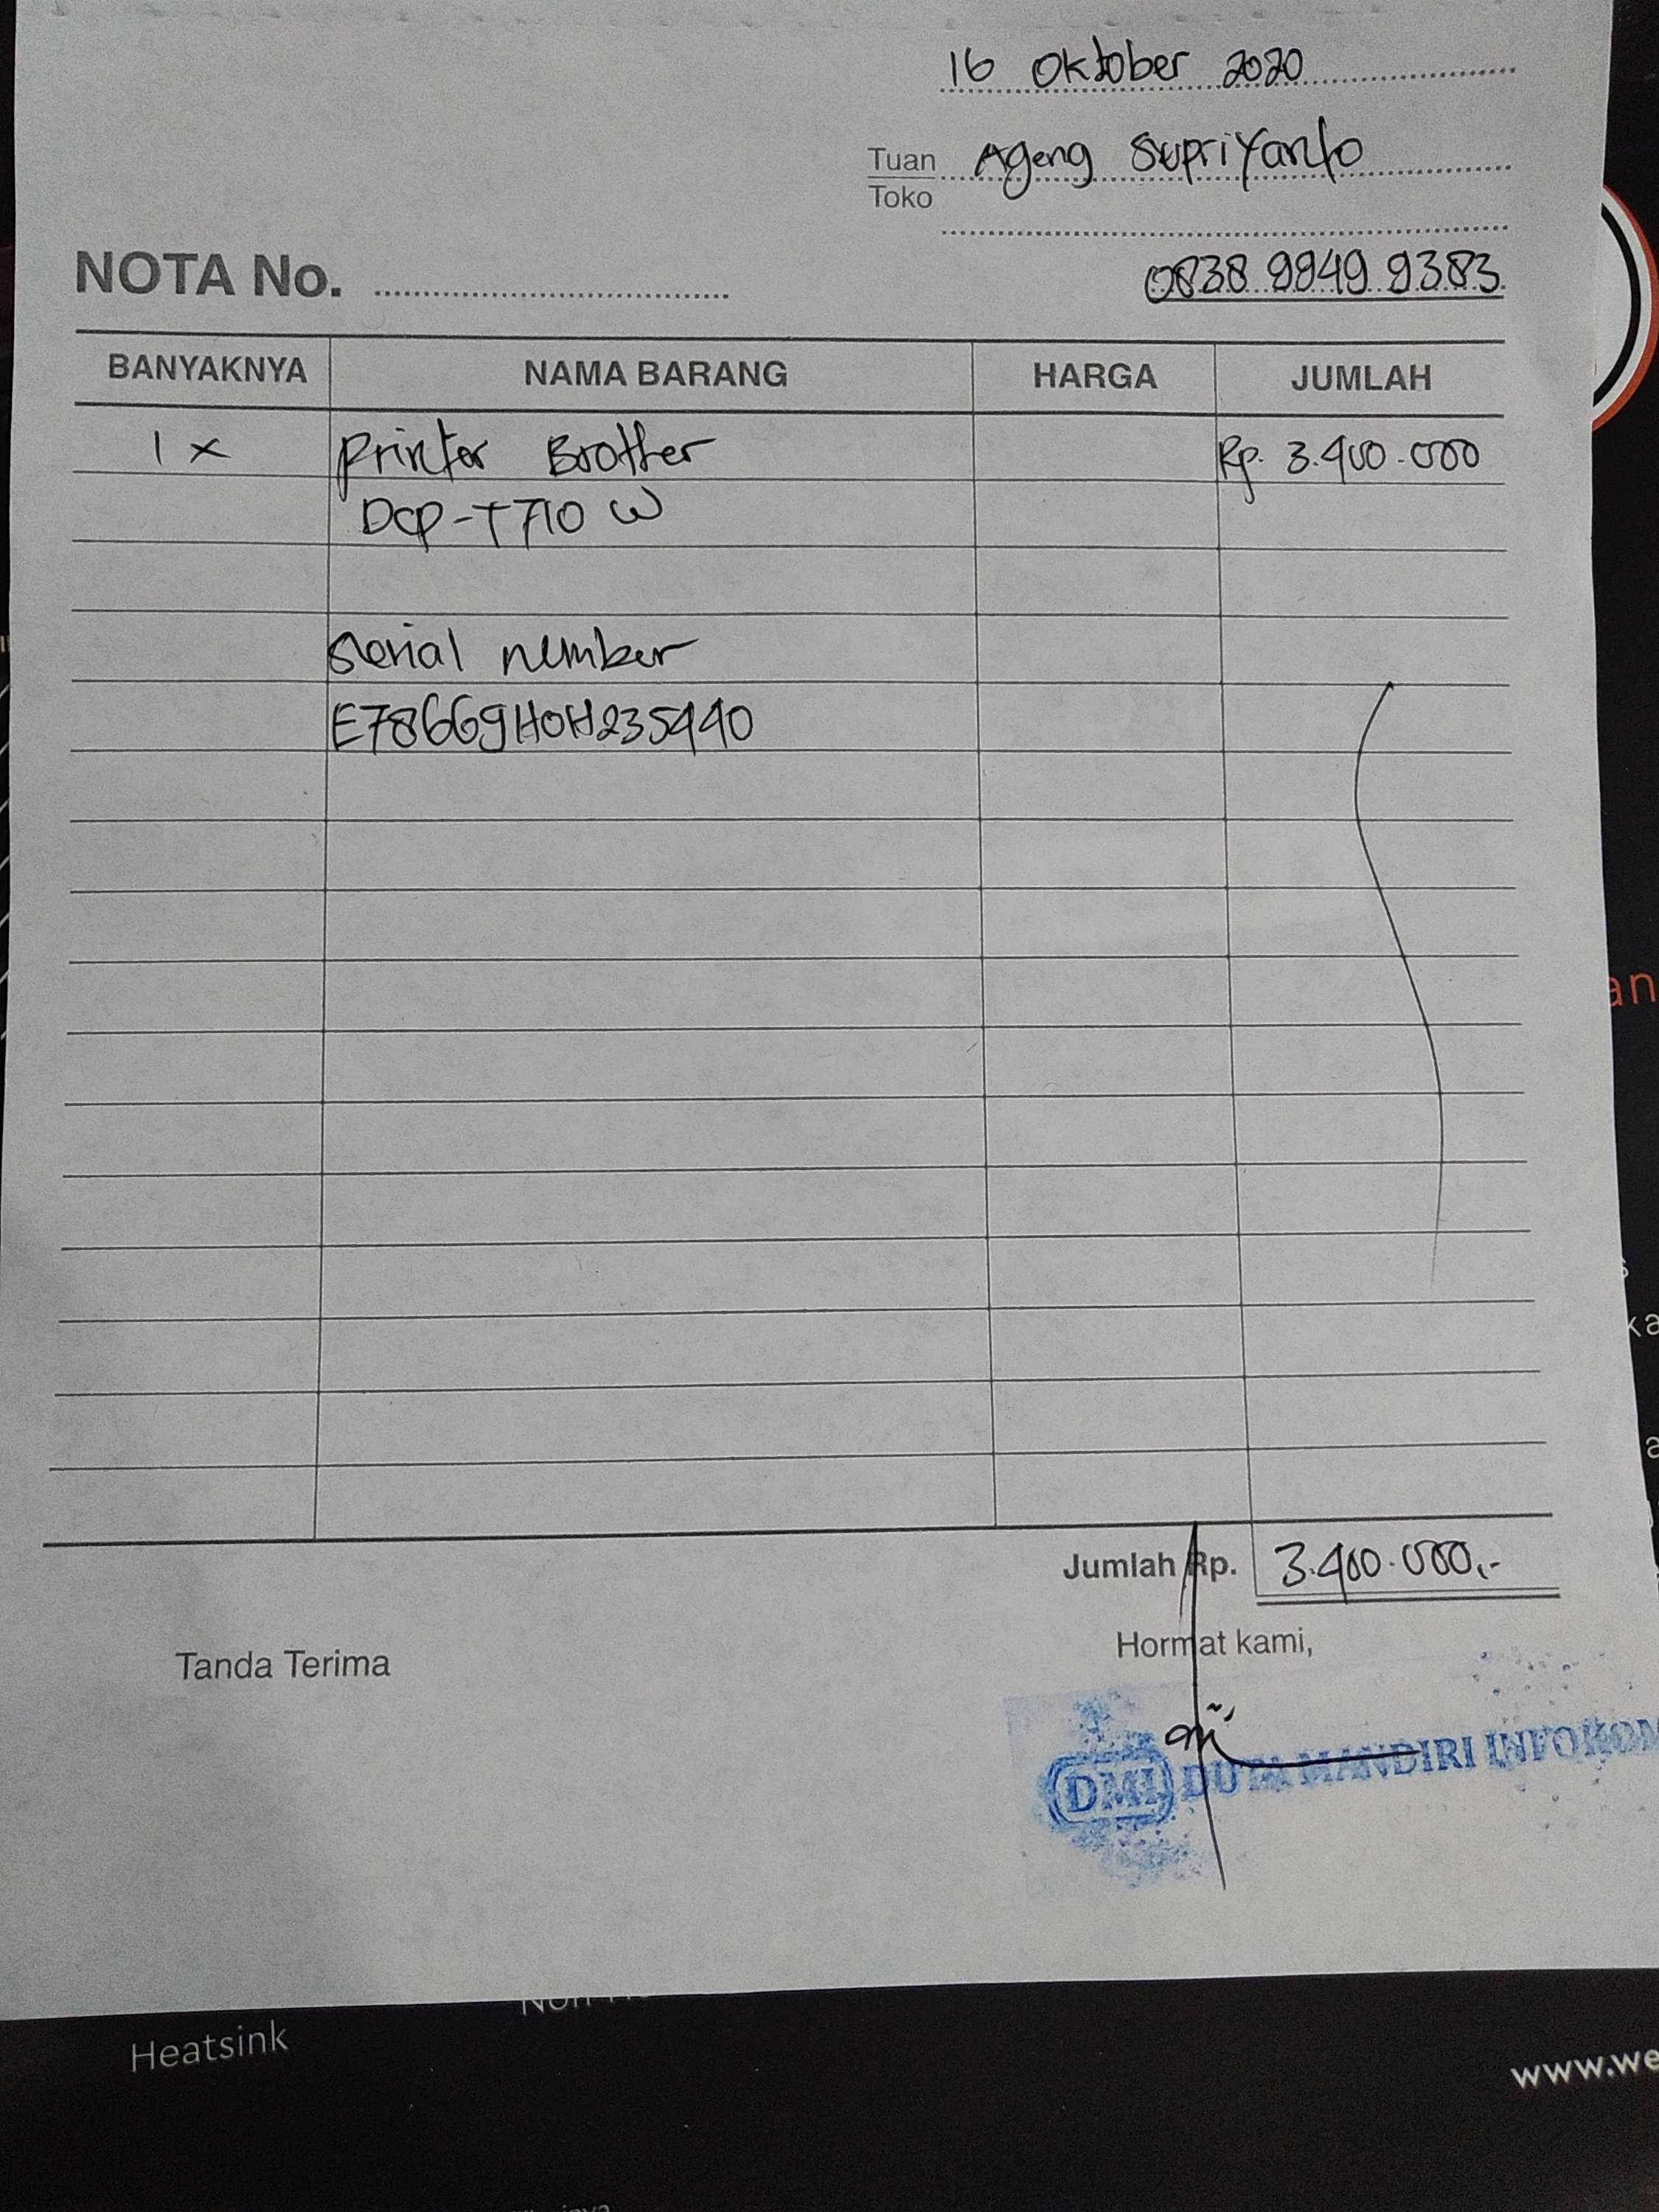 16 Oktober 2020
Tuan Ageng Supriyanto
Toko
NOTA No.
0838 9949 9383
BANYAKNYA NAMA BARANG HARGA JUMLAH
1 x Printer Brother Rp. 3.400.000
DCP-T710 W
Serial number
E78669H0H235440
Jumlah Rp. 3.400.000,-
Tanda Terima
Hormat kami,
DMI DUTA MANDIRI INFOKOM
Heatsink
www.we